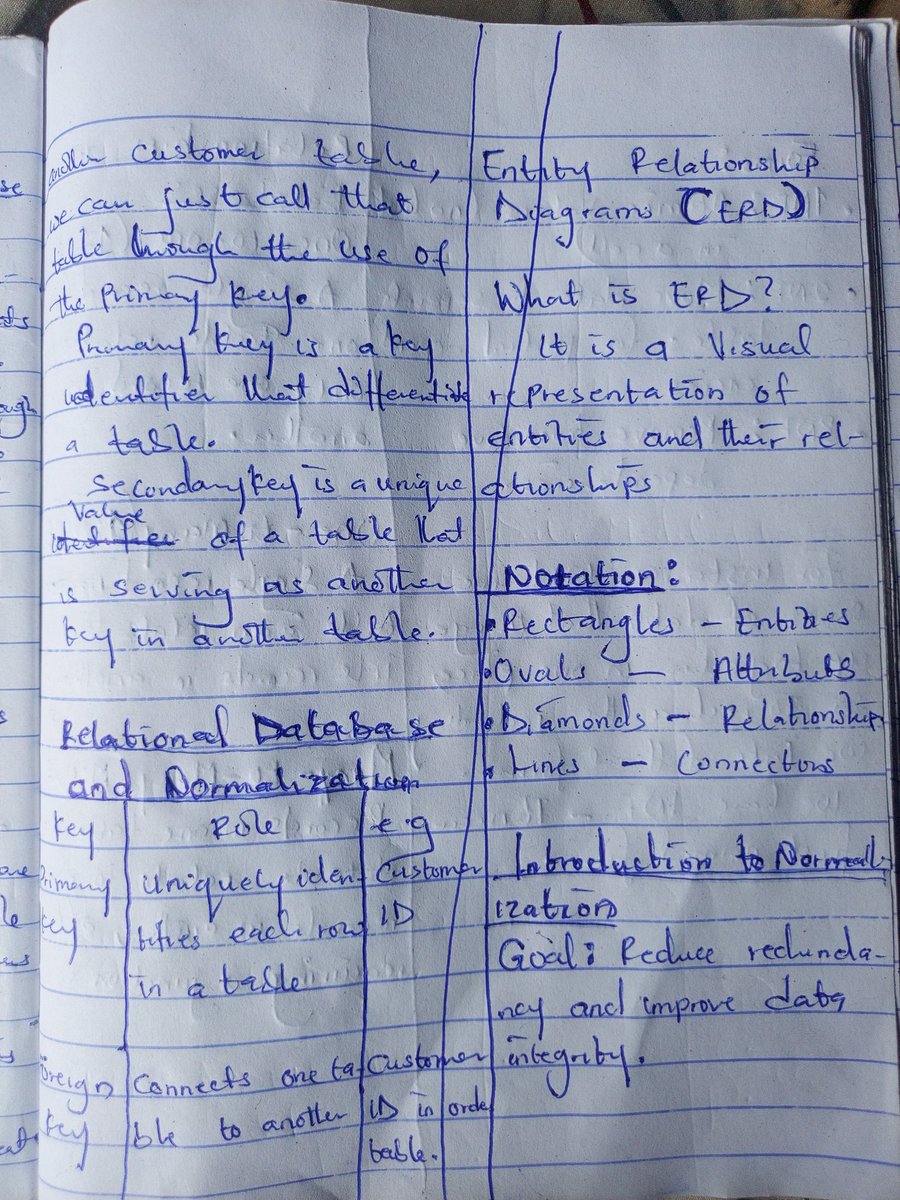 another customer table,
we can just call that
table through the use of
the Primary key.
Primary key is a key
identifier that differentiate
a table.
Secondary key is a unique
value
identifier of a table that
is serving as another
key in another table.
Relational Database
and Normalization
Key Role e.g
Primary Uniquely iden Customer
key tifies each row ID
in a table
Foreign Connects one ta Customer
key ble to another ID in order
table.
Entity Relationship
Diagrams (ERD)
What is ERD?
It is a Visual
representation of
entities and their rel-
ationships
Notation:
• Rectangles - Entities
• Ovals - Attributs
• Diamonds - Relationship
• Lines - Connectors
Introduction to Normal-
ization
Goal: Reduce redunda-
ncy and improve data
integrity.